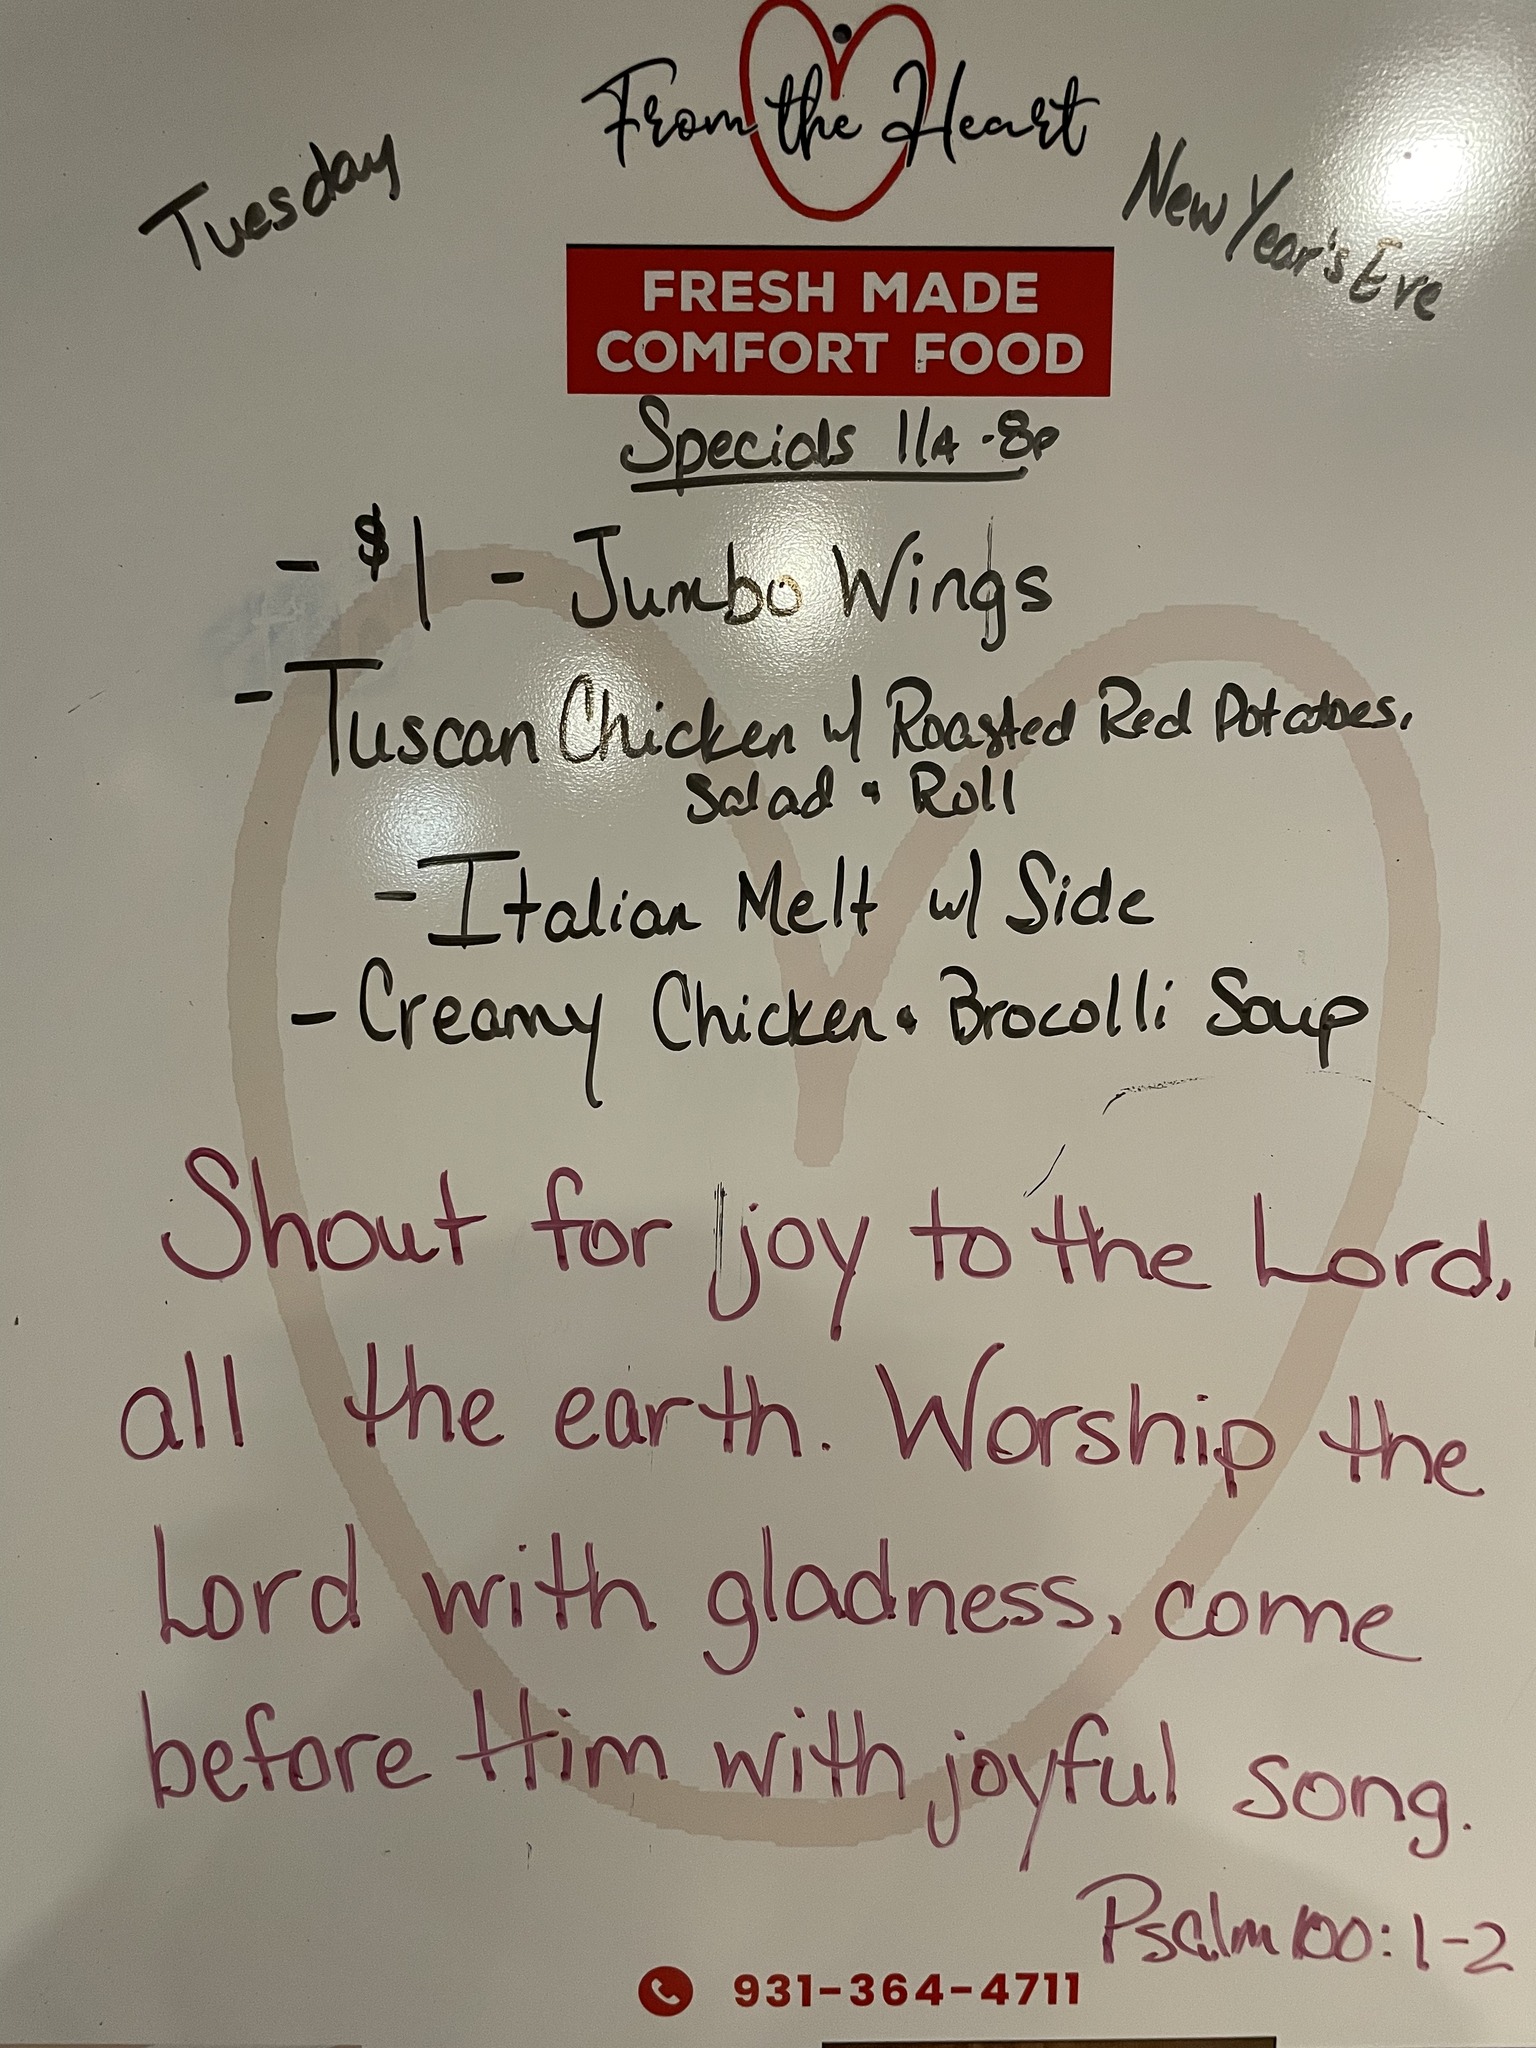 From the Heart
Tuesday
New Year's Eve
FRESH MADE
COMFORT FOOD
Specials 11A - 8P
- $1 - Jumbo Wings
- Tuscan Chicken w/ Roasted Red Potatoes,
Salad & Roll
- Italian Melt w/ Side
- Creamy Chicken & Brocolli Soup
Shout for joy to the Lord,
all the earth. Worship the
Lord with gladness, come
before Him with joyful song.
Psalm 100:1-2
931-364-4711